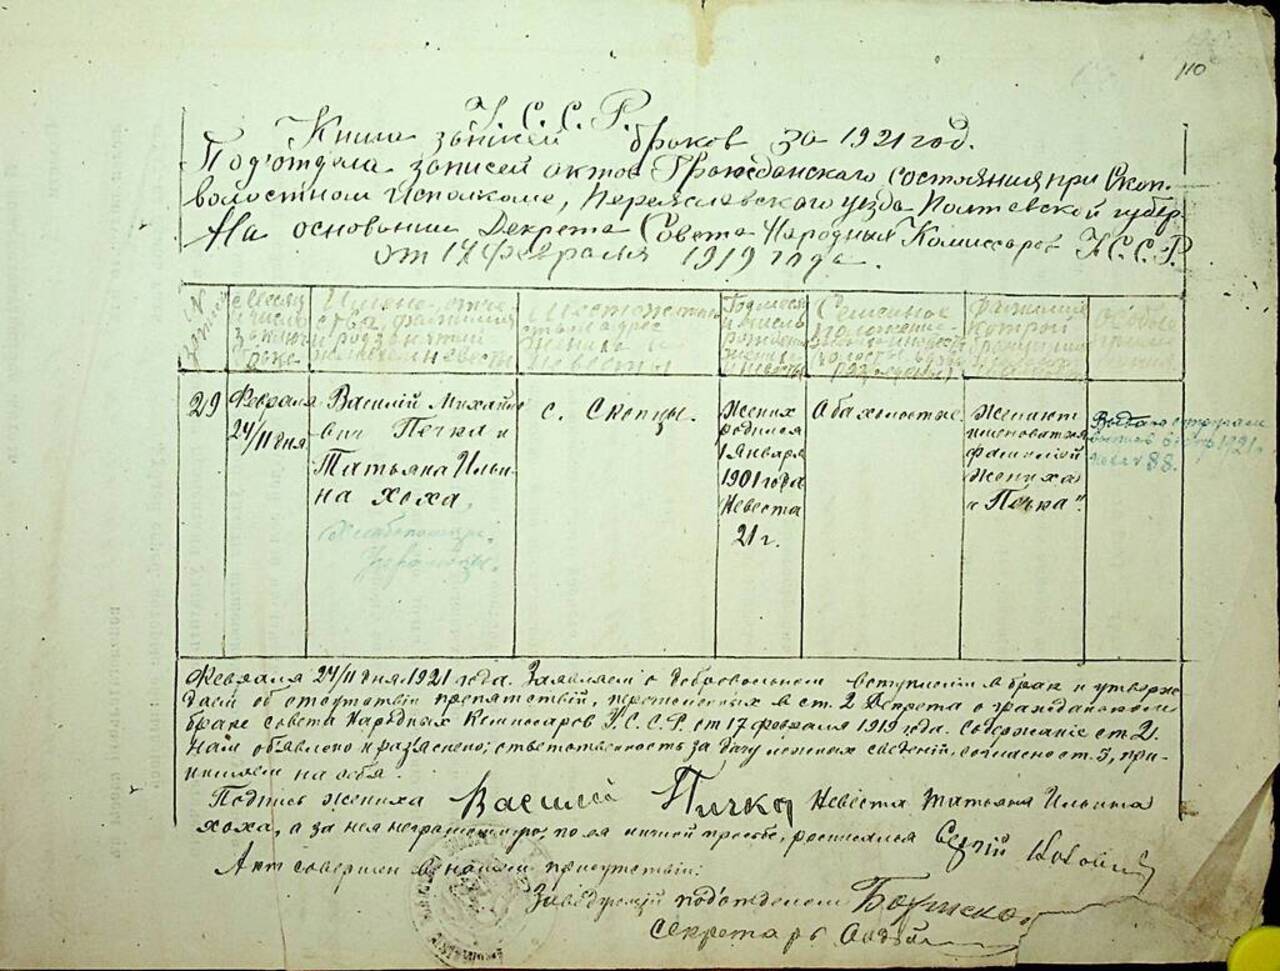 110
У. С. С. Р.
Книга записей браков за 1921 год.
Под'отдела записей актов Гражданскаго Состояния при Скоп.
волостном Исполкоме, Переяславского уезда Полтавской губер.
На основании Декрета Совета Народных Комиссаров У.С.С.Р.
от 17 февраля 1919 года.
N
записи
Месяц
и число
заключ.
брака
Имена, отче-
ства, фамилии
и род занятий
жениха и невесты
Местожитель-
ство и адрес
жениха и
невесты
Год, месяц
и число
рождения
жениха
и невесты
Семейное
положение
Фамилия
которой
Особые
29
Февраля
24/11 дня
Василий Михайло
вич Печка и
Татьяна Ильи-
на Хоха
Хлебопашцы.
с. Скопцы.
Жених
родился
1 Января
1901 года
Невеста
21 г.
Оба холостые
Желают
именоватся
фамилией
жениха
"Печка".
1921.
88.
Февраля 24/11 дня 1921 года. Заявляем о добровольном вступлении в брак и утверж-
даем об отсутствии препятствий, перечисленных в ст. 2 Декрета о гражданском
браке совета Народных Комиссаров У.С.С.Р. от 17 февраля 1919 года. Содержание ст. 21
нам объявлено и раз'яснено; ответственность за дачу ложных сведений, согласно ст. 5, при-
нимаем на себя.
Подпись жениха Василий Пичка Невеста Татьяна Ильина
Хоха, а за нея неграмотную, по ея личной просьбе, росписался Сергій
Акт совершен в нашем присутствии.
Заведующий подотделом
Секретарь